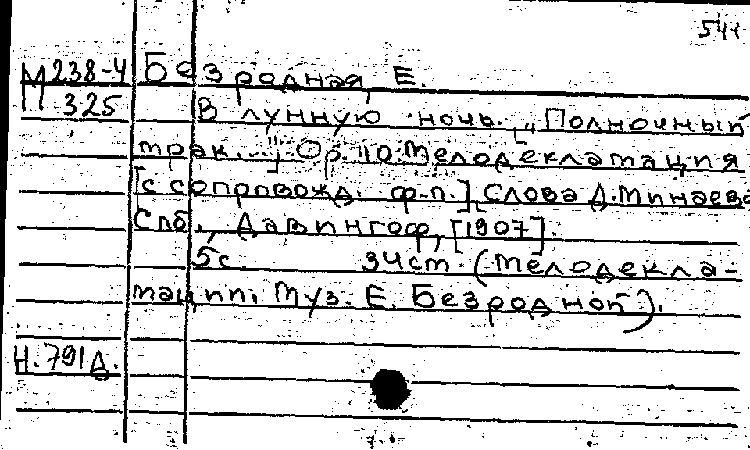 М 238-4 Безродная, Е.
325 В лунную ночь. [„Полночный
мрак..."] Ор. 10. Мелодекламация
[с сопровожд. ф-п.], слова Д. Минаева
Спб., Давингоф, [1907].
5с. 34см. (Мелодекла-
мации. Муз. Е. Безродной).
Н. 791Д.